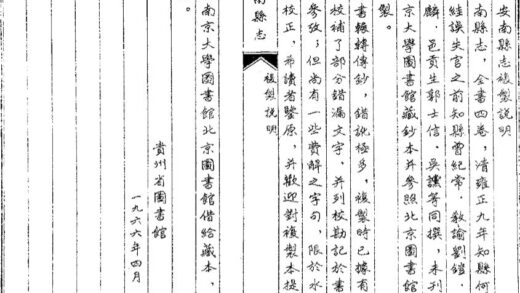 安南縣志複製說明
南縣志,全書四卷,清雍正九年知縣何
絓誤失官之前知縣曾紀常,教諭劉
麟,邑貢生郭士信,吳等同撰,未刊
京大學圖書館藏鈔本并參照北京圖書館
製。
書輾轉傳鈔,錯訛極多,複製時已據有
校補了部分錯漏文字,并列校勘記於書
參攷了但尚有一些費解之字句,限於水
校正,希讀者鑒原,并歡迎對複製本提
南縣志
複製說明
南京大學圖書館北京圖書館借給藏本,
。
貴州省圖書館
一九六六年四月